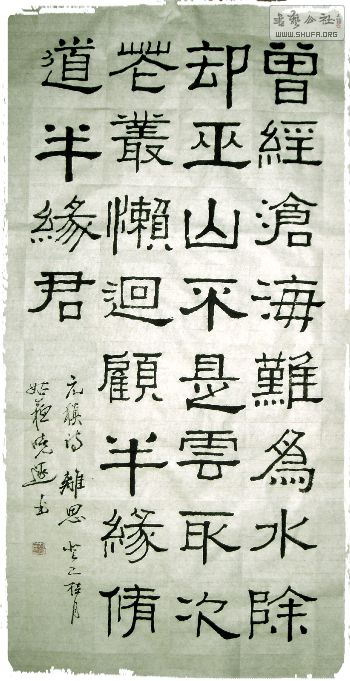 書藝公社
WWW.SHUFA.ORG
曾經滄海難爲水除
却巫山不是雲取次
花叢懶迴顧半緣脩
道半緣君
元稹詩 離思
姑蘇曉